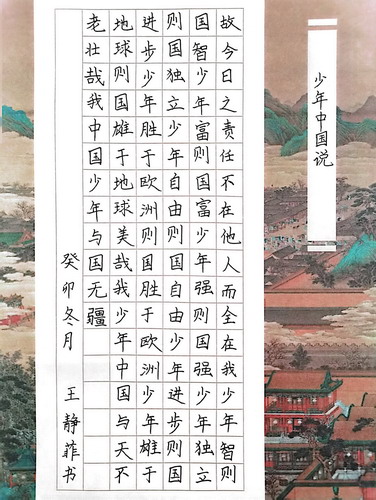 少年中国说
故今日之责任不在他人而全在我少年智则
国智少年富则国富少年强则国强少年独立
则国独立少年自由则国自由少年进步则国
进步少年胜于欧洲则国胜于欧洲少年雄于
地球则国雄于地球美哉我少年中国与天不
老壮哉我中国少年与国无疆
癸卯冬月 王静菲书